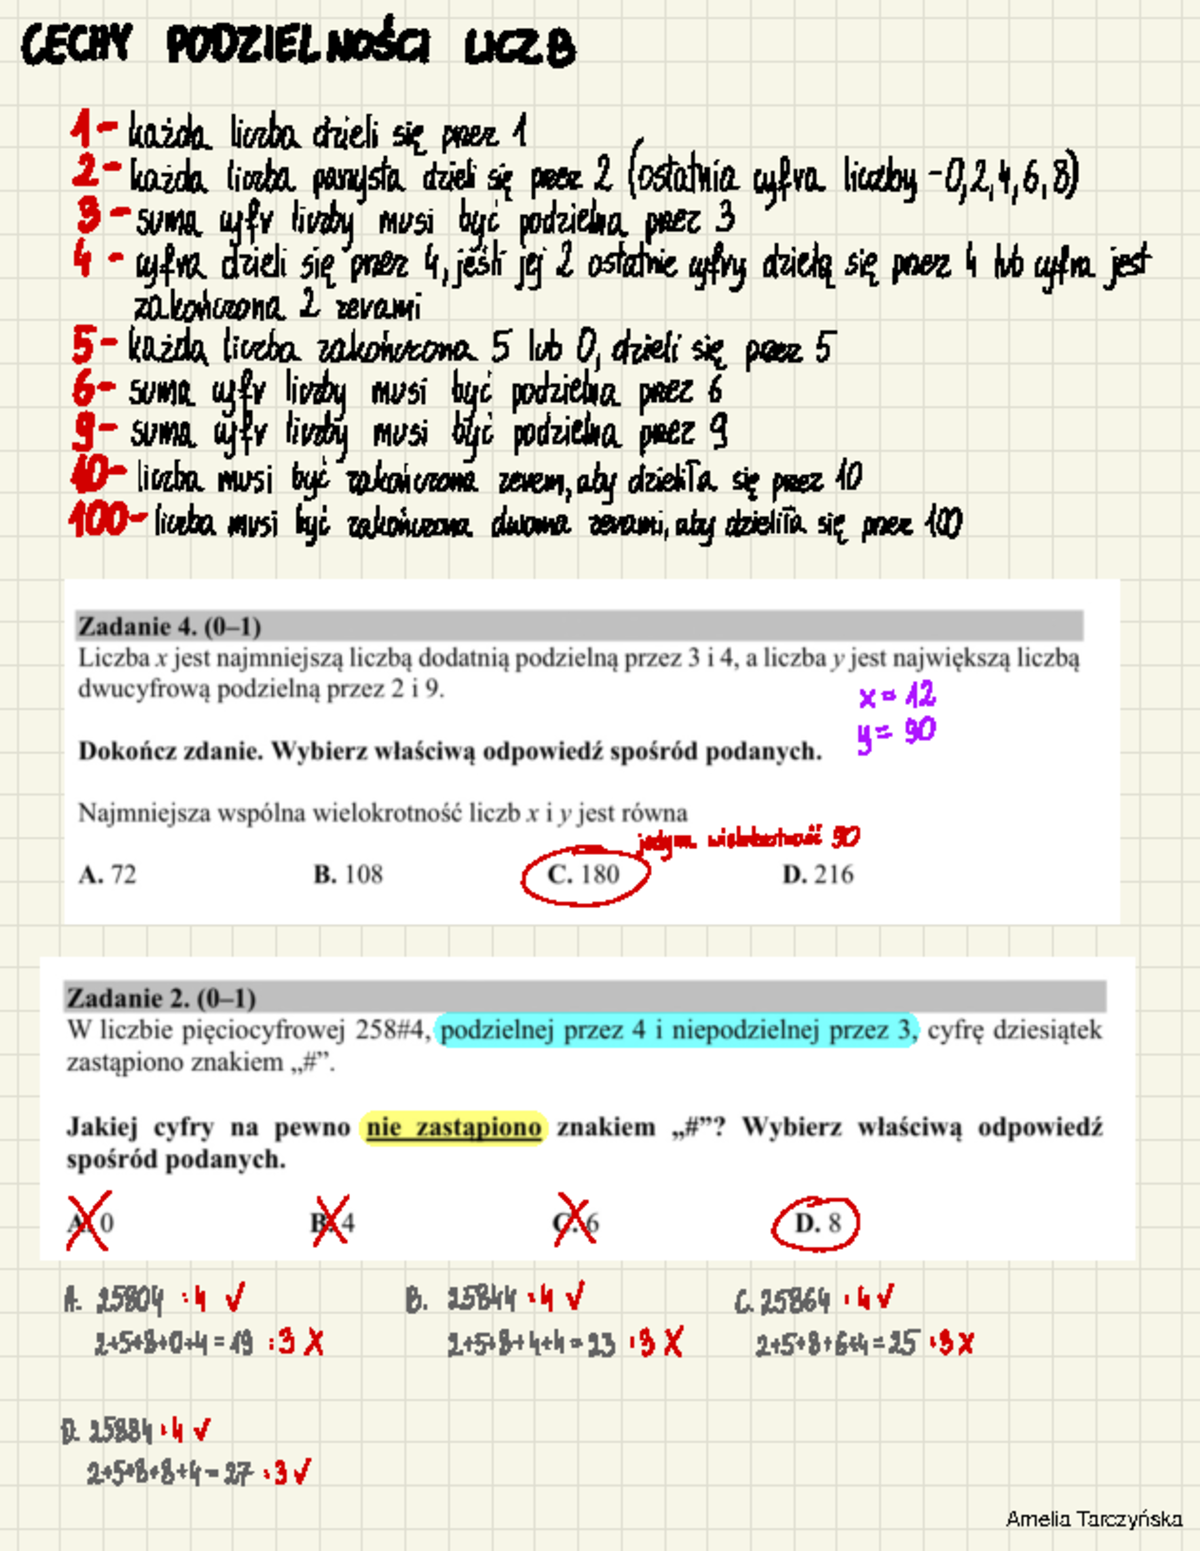 CECHY PODZIELNOŚCI LICZB
1- każda liczba dzieli się przez 1
2- każda liczba parzysta dzieli się przez 2 (ostatnia cyfra liczby -0,2,4,6,8)
3- suma cyfr liczby musi być podzielna przez 3
4 - cyfra dzieli się przez 4, jeśli jej 2 ostatnie cyfry dzielą się przez 4 lub cyfra jest
zakończona 2 zerami
5- każda liczba zakończona 5 lub 0, dzieli się przez 5
6- suma cyfr liczby musi być podzielna przez 6
9- suma cyfr liczby musi być podzielna przez 9
10- liczba musi być zakończona zerem, aby dzieliła się przez 10
100- liczba musi być zakończona dwoma zerami, aby dzieliła się przez 100
Zadanie 4. (0–1)
Liczba x jest najmniejszą liczbą dodatnią podzielną przez 3 i 4, a liczba y jest największą liczbą
dwucyfrową podzielną przez 2 i 9.
x = 12
y = 90
Dokończ zdanie. Wybierz właściwą odpowiedź spośród podanych.
Najmniejsza wspólna wielokrotność liczb x i y jest równa
jedyna wielokrotność 90
A. 72 B. 108 C. 180 D. 216
Zadanie 2. (0–1)
W liczbie pięciocyfrowej 258#4, podzielnej przez 4 i niepodzielnej przez 3, cyfrę dziesiątek
zastąpiono znakiem „#”.
Jakiej cyfry na pewno nie zastąpiono znakiem „#”? Wybierz właściwą odpowiedź
spośród podanych.
A. 0 B. 4 C. 6 D. 8
A. 25804 :4 ✓ B. 25844 :4 ✓ C. 25864 :4 ✓
2+5+8+0+4=19 :3 X 2+5+8+4+4=23 :3 X 2+5+8+6+4=25 :3 X
D. 25884 :4 ✓
2+5+8+8+4=27 :3 ✓
Amelia Tarczyńska